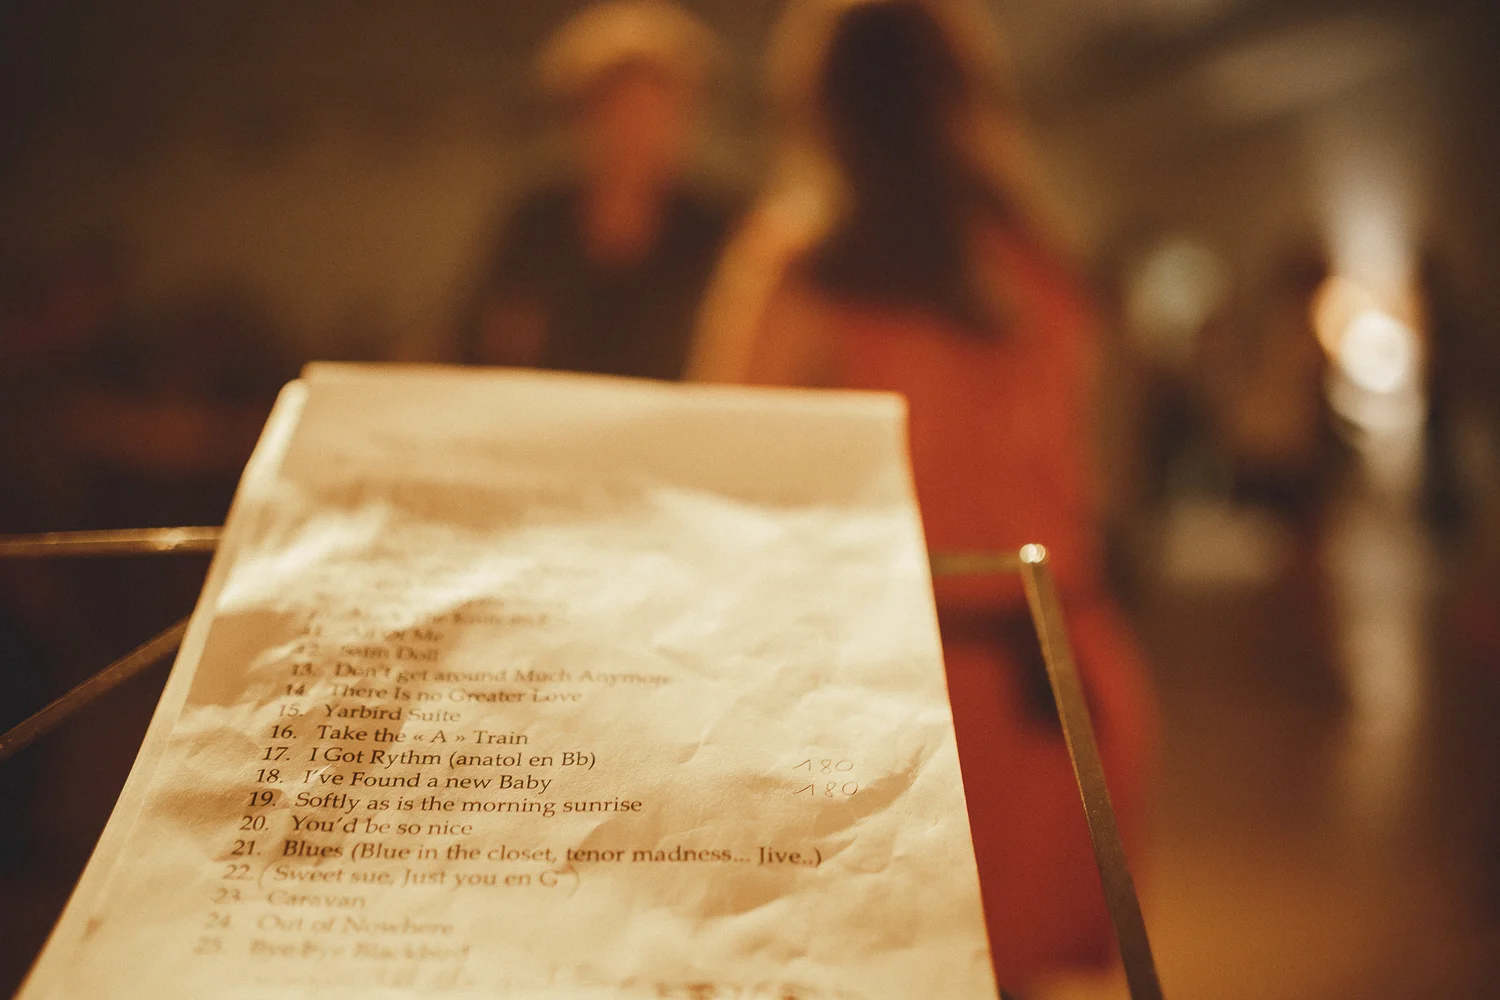 11. All of Me
12. Satin Doll
13. Don't get around Much Anymore
14. There Is no Greater Love
15. Yarbird Suite
16. Take the « A » Train
17. I Got Rythm (anatol en Bb) 180
18. I've Found a new Baby 180
19. Softly as is the morning sunrise
20. You'd be so nice
21. Blues (Blue in the closet, tenor madness... Jive..)
22. (Sweet sue, Just you en G)
23. Caravan
24. Out of Nowhere
25. Bye Bye Blackbird